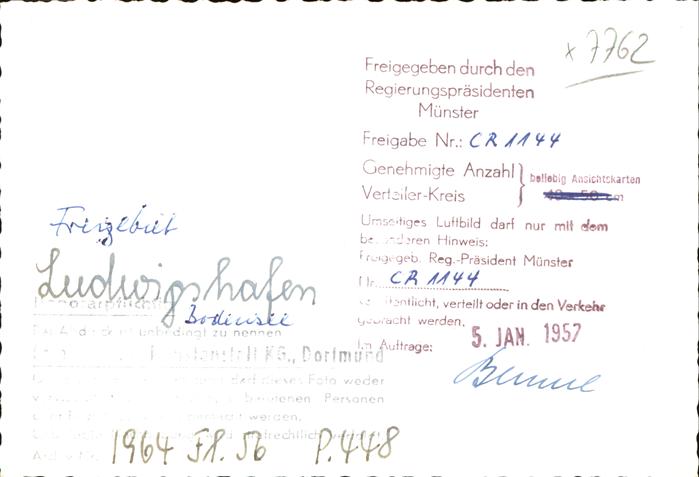 x 7762
Freigegeben durch den
Regierungspräsidenten
Münster
Freigabe Nr.: CR 1144
Genehmigte Anzahl
beliebig Ansichtskarten
Verteiler-Kreis
Umseitiges Luftbild darf nur mit dem
besonderen Hinweis:
Freigegeb. Reg.-Präsident Münster
Nr. CR 1144
veröffentlicht, verteilt oder in den Verkehr
gebracht werden.
Im Auftrage:
5. JAN. 1957
Freigebiet
Ludwigshafen
Bodensee
Honorarpflichtig
unbedingt zu nennen
KG., Dortmund
darf dieses Foto weder
Personen
werden.
1964 Fl. 56 P. 448